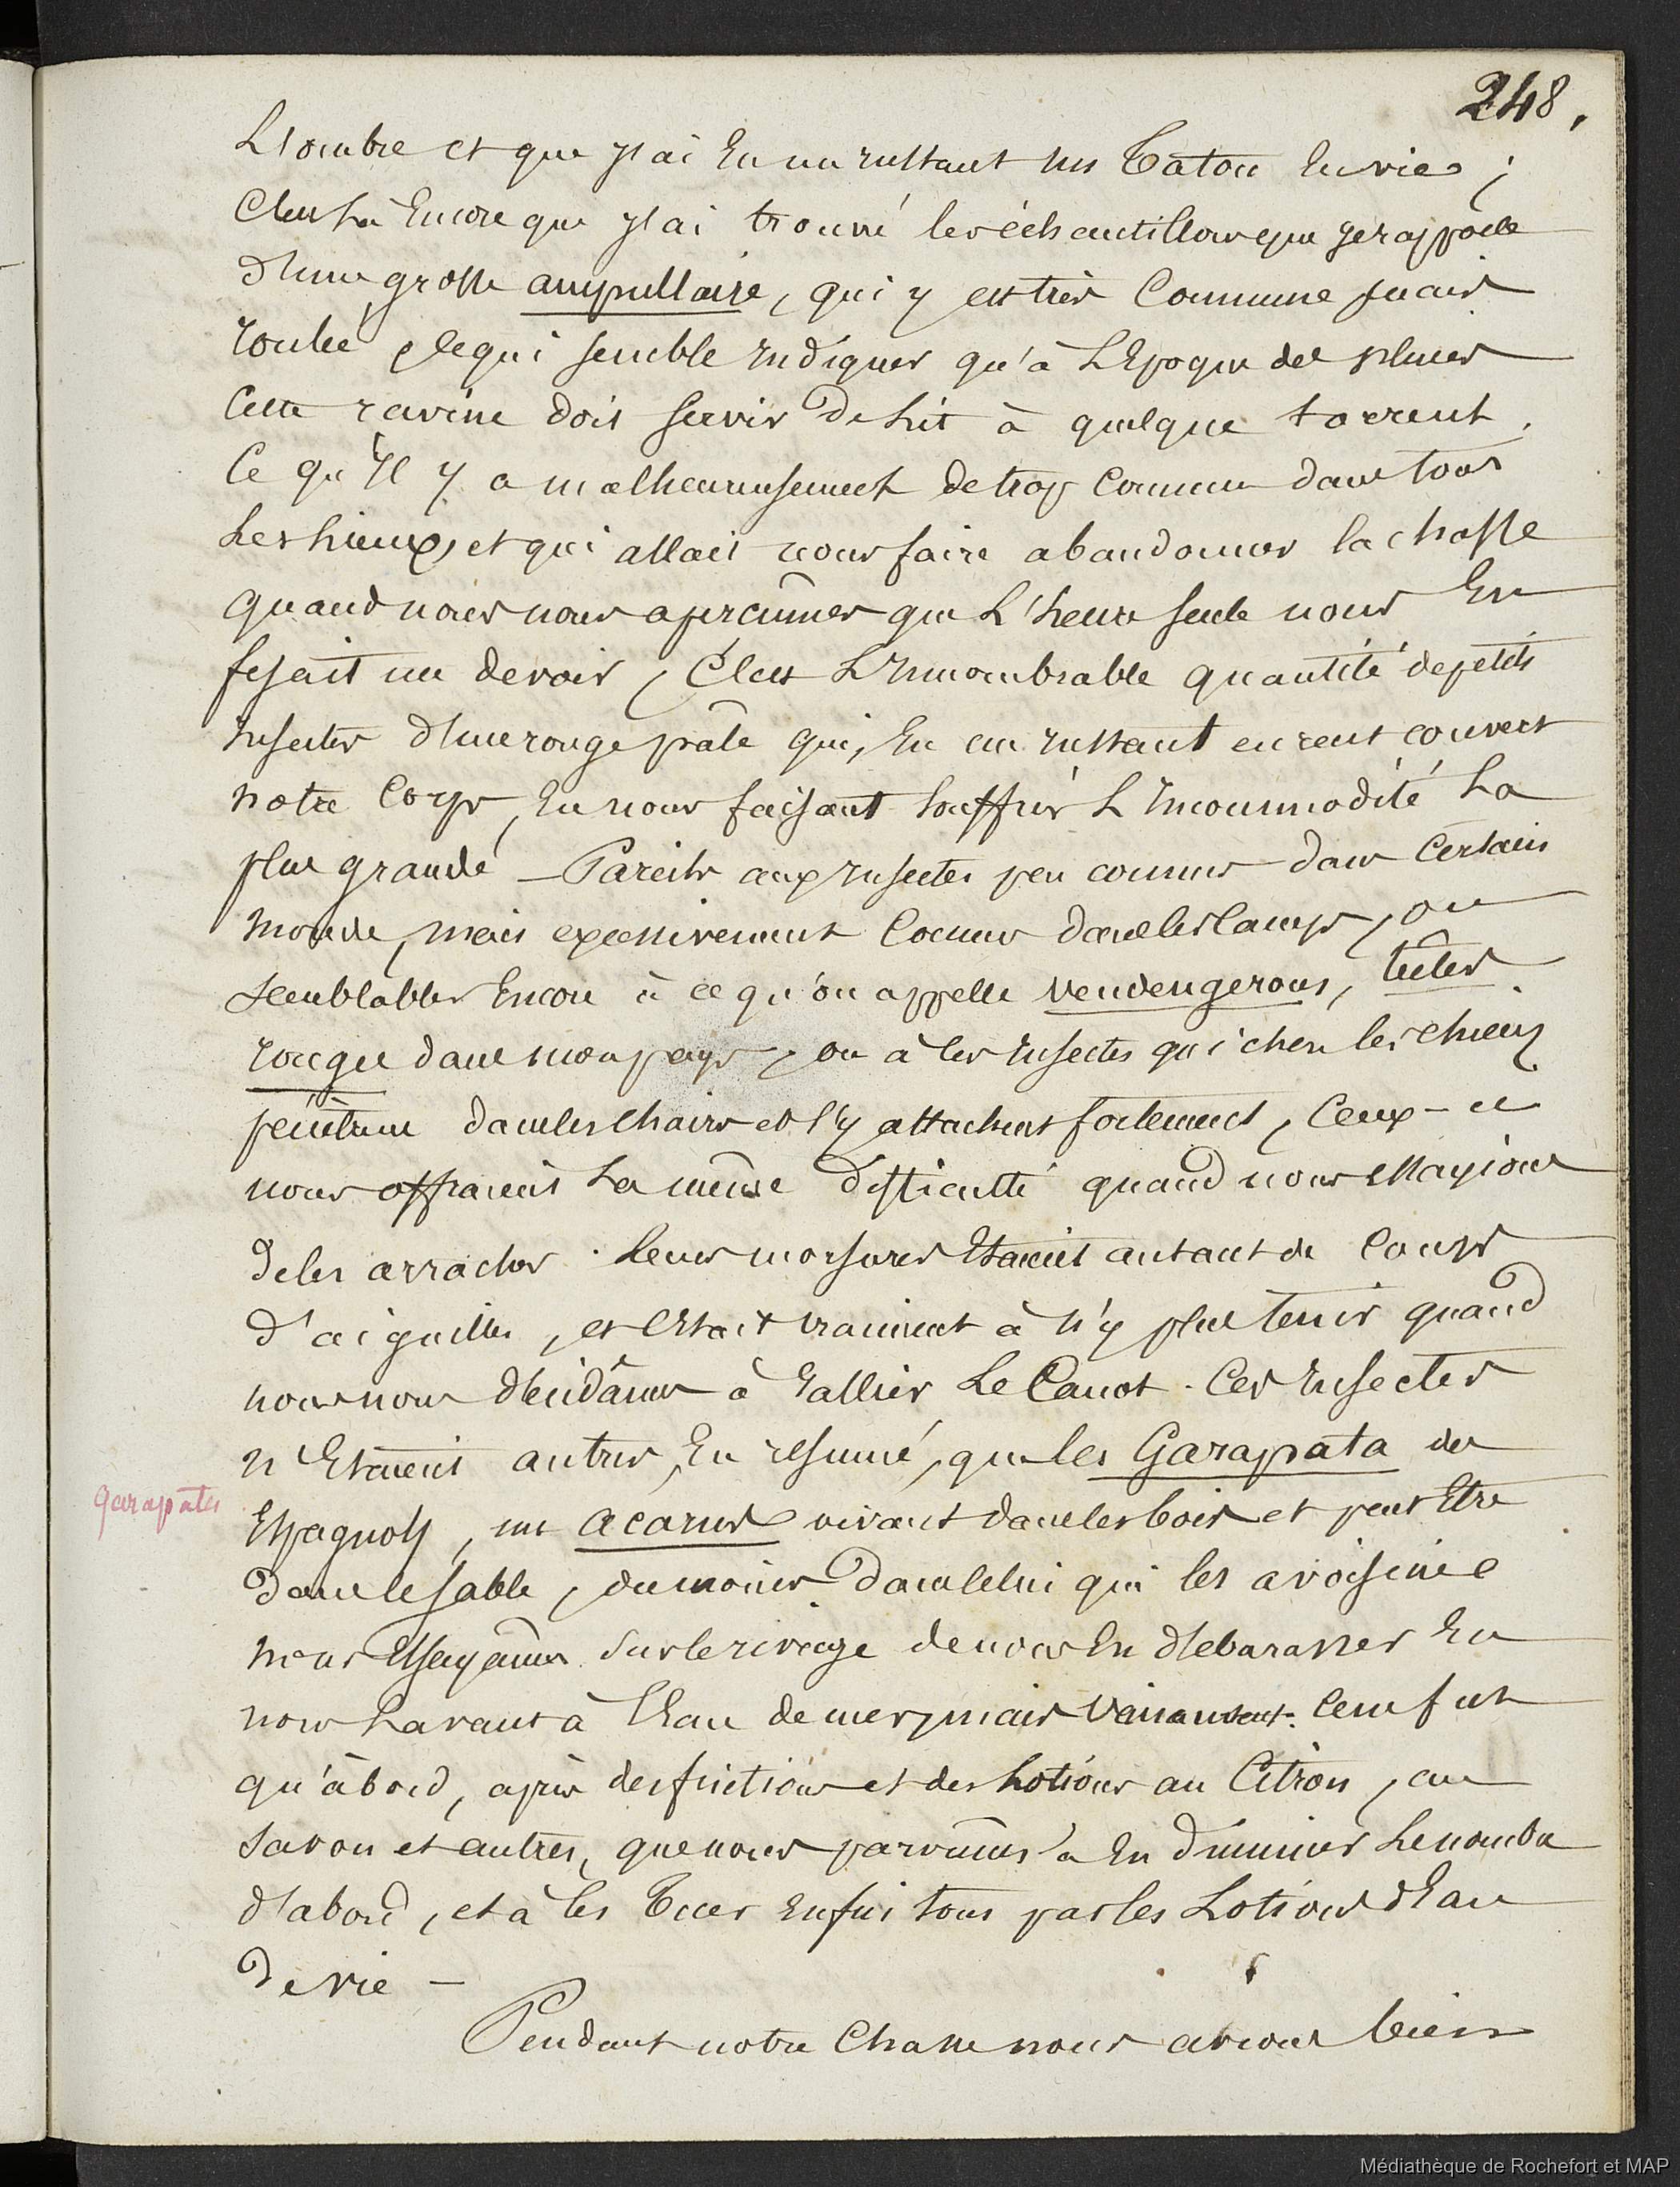 248.
L'ombre et que j'ai Eu un instant un Tatou En vie ;
C'est là Encore que j'ai trouvé les échantillons que je rapporte
d'une grosse ampullaire, qui y est très Commune mais
roulée, ce qui semble indiquer qu'à L'Epoque des pluies
Cette ravine doit servir de Lit à quelque torrent.
Ce qu'Il y a malheureusement de trop Commun dans tous
Les Lieux, et qui allait nous faire abandonner la chasse
quand nous nous aperçûmes que L'heure seule nous En
fesait un devoir, C'est L'Innombrable quantité de petits
Insectes d'un rouge pâle qui, En un Instant eurent couvert
notre Corps, En nous faisant souffrir L'Incommodité La
plus grande — Pareils aux Insectes peu connus dans Certain
monde, mais excessivement Connus dans les Camps, ou
semblables Encore à ce qu'on appelle vendengerons, tîtes
rouges dans mon pays, ou à ces Insectes qui chez les chiens
pénètrent dans les chairs et s'y attachent fortement, Ceux-ci
nous offraient La même difficulté quand nous Essayions
de les arracher. Leurs morsures Etaient autant de Coups
d'aiguilles, et C'Etait vraiment à n'y plus tenir quand
nous nous décidâmes à rallier Le Canot. Ces Insectes
n'Etaient autres, En résumé, que les Garapata des
garapates
Espagnols, un acarus vivant dans les bois et peut Etre
dans le sable, du moins dans celui qui les avoisine
nous Essayâmes sur le rivage de nous En débarasser En
nous Lavant à L'Eau de mer, mais vainement. Ce ne fut
qu'à bord, après des frictions et des Lotions au Citron, au
savon et autres, que nous parvînmes à En diminuer Le nombre
d'abord, et à les Tuer Enfin tous par les Lotions d'Eau
de vie —
Pendant notre Chasse nous avions bien
Médiathèque de Rochefort et MAP